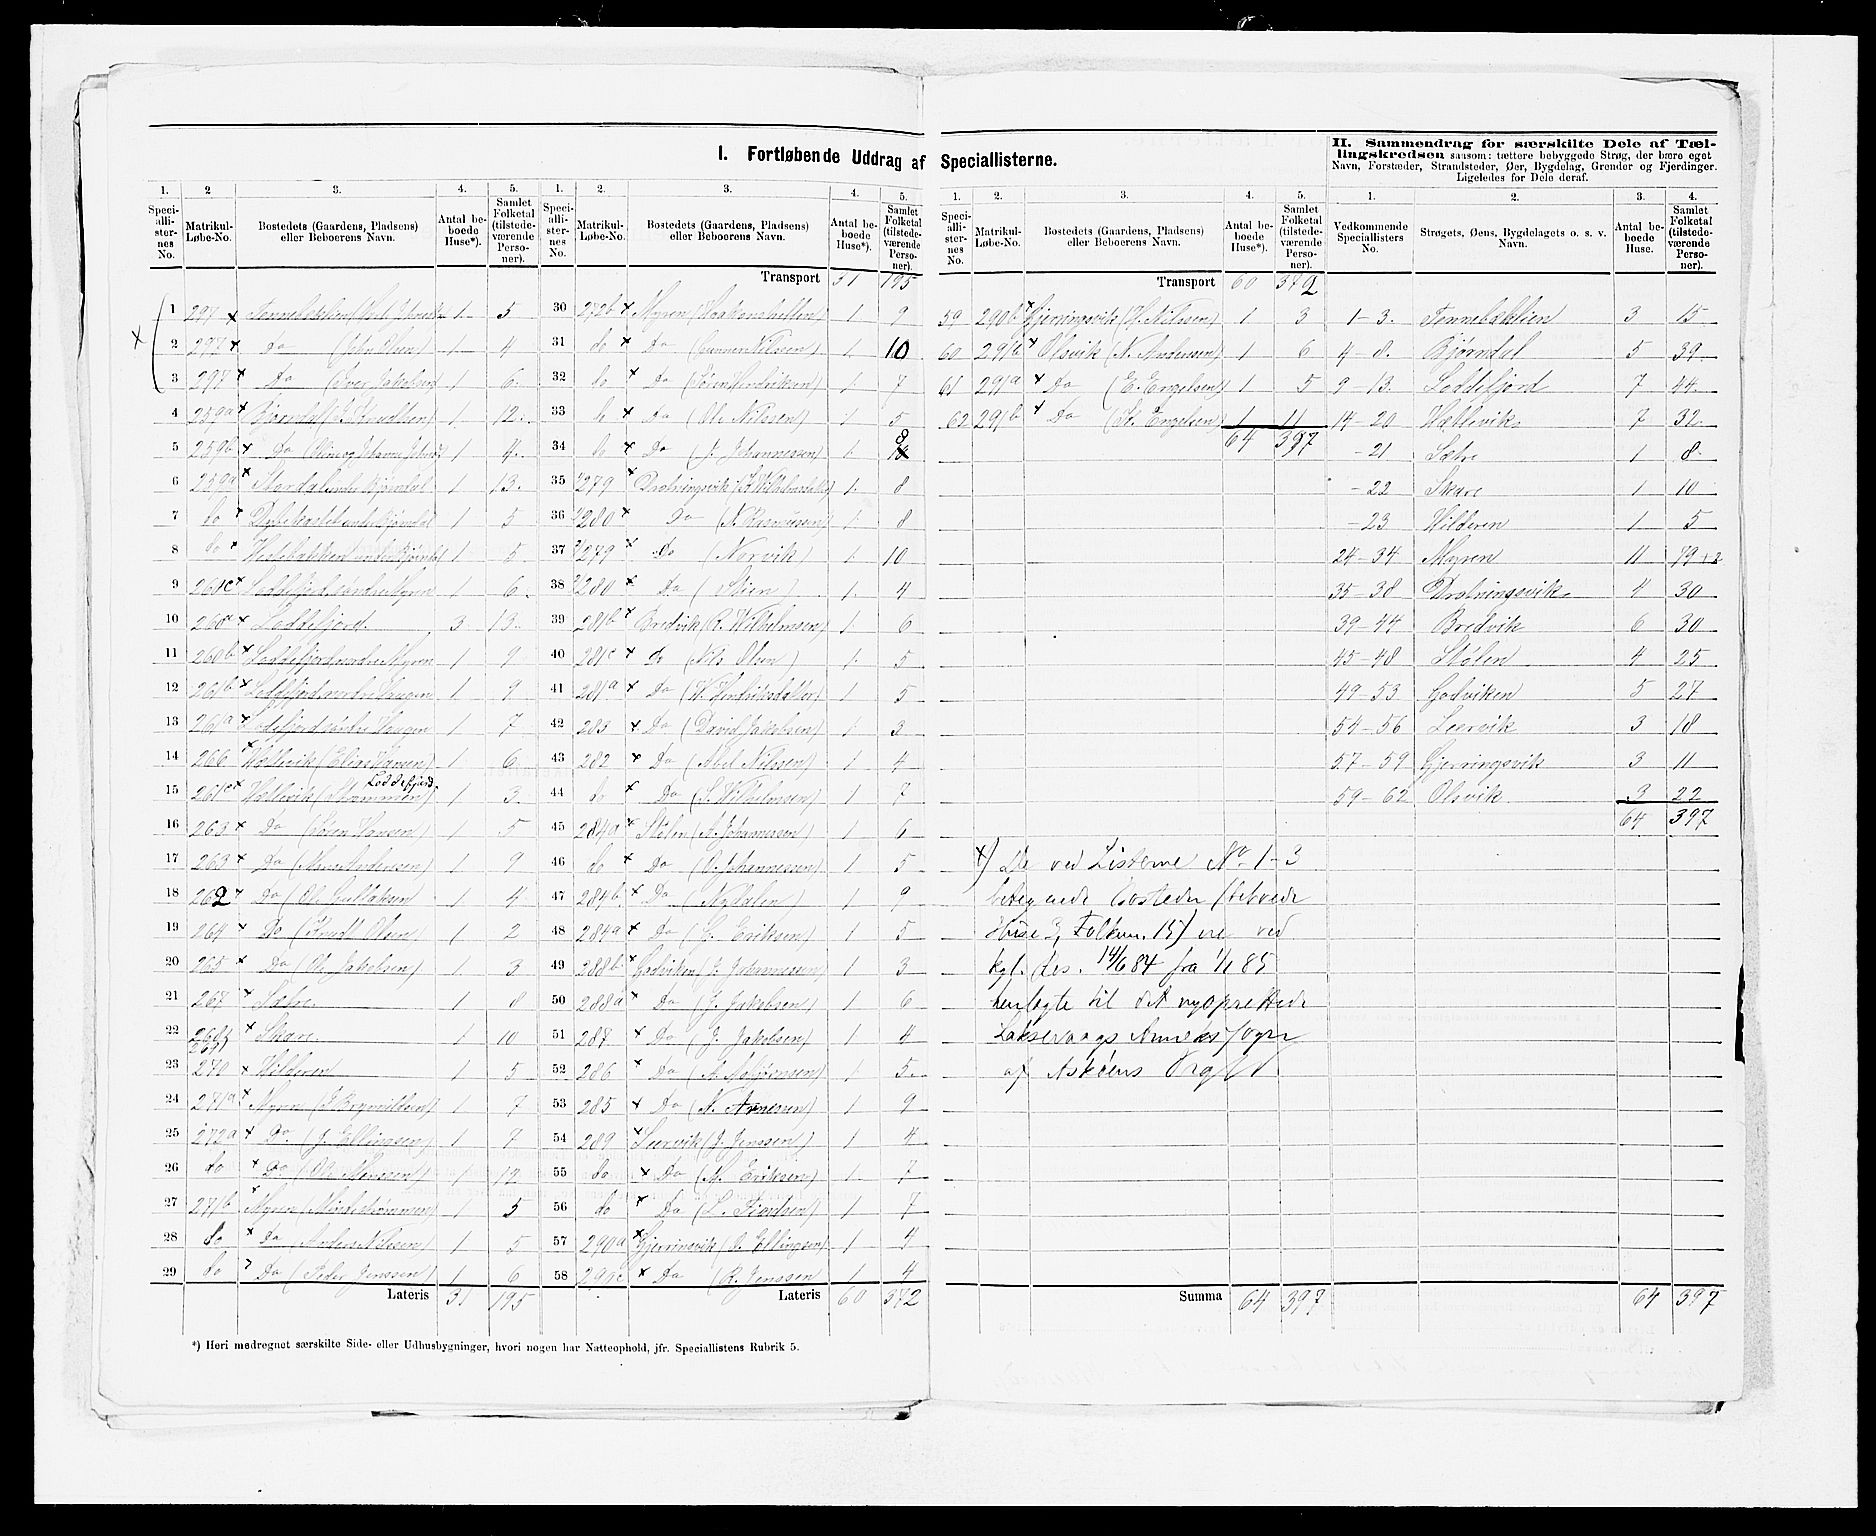 I. Fortløbende Uddrag af Speciallisterne.
II. Sammendrag for særskilte Dele af Tællingskredsen saasom: tættere bebyggede Strøg, der bære eget Navn, Forstæder, Strandsteder, Øer, Bygdelag, Grender og Fjerdinger. Ligeledes for Dele deraf.
1. 2 3. 4. 5.
Speciallisternes No. Matrikul-Løbe-No. Bostedets (Gaardens, Pladsens) eller Beboerens Navn. Antal beboede Huse*). Samlet Folketal (tilstedeværende Personer).
1 297 x 1 5
2 297 x Do (John Olsen) 1 4
3 297 x Do (Iver Jakobsen) 1 6
4 259a x Bjørndal 1 12
5 259b x Do 1 4
6 259a x Stordal under Bjørndal 1 13
7 do x 1 5
8 do x under Bjørndal 1 5
9 261c x Loddefjord søndre Myren 1 6
10 260a x Loddefjord 3 13
11 260b x Loddefjord nordre Myren 1 9
12 261b x Loddefjord nordre Haugen 1 9
13 261a x Loddefjord søndre Haugen 1 7
14 266 x Hætlevik (Elias Hansen) 1 6
15 261c x Hætlevik Loddefjord 1 3
16 263 x Do (Søren Hansen) 1 5
17 263 x Do (Mons Anderssen) 1 9
18 262 x Do 1 4
19 264 x Do (Knudt Olsen) 1 2
20 265 x Do (Ol. Jakobsen) 1 3
21 267 x Sætre 1 8
22 268 269 x Skare 1 10
23 270 x Hilderen 1 5
24 271a x Myren 1 7
25 272a x Do. (J. Ellingsen) 1 7
26 do x Do (Ole Monssen) 1 12
27 271b x Myren 1 5
28 do x Do (Anders Nilssen) 1 5
29 do Do (Peder Jenssen) 1 6
Lateris 31 195
1. 2. 3. 4. 5.
Speciallisternes No. Matrikul-Løbe-No. Bostedets (Gaardens, Pladsens) eller Beboerens Navn. Antal beboede Huse*). Samlet Folketal (tilstedeværende Personer).
Transport 31 195
30 272b x Myren (Haakonshellen) 1 9
31 do x Do (Gunner Nilssen) 1 10
32 do x Do (Søren Hendriksen) 1 7
33 do x Do (Ole Nilssen) 1 5
34 do x Do (J. Johannessen) 1 8
35 279 x Drotningsvik 1 8
36 280 x Do (N. Rasmussen) 1 8
37 279 x Do (Norvik) 1 10
38 280 x Do (Stien) 1 4
39 281b x Bredvik (R. Wilhelmsen) 1 6
40 281c x Do (Nils Olsen) 1 5
41 281a x Do (W. Hendriksdatter) 1 5
42 283 x Do (David Jakobsen) 1 3
43 282 x Do (Abel Nilssen) 1 4
44 do x Do (S. Wilhelmsen) 1 7
45 284a x Stølen (A. Johannessen) 1 6
46 do x Do (O. Johannessen) 1 5
47 284b x Do (Nydalen) 1 9
48 284a x Do (G. Eriksen) 1 5
49 288b x Godviken (J. Johannessen) 1 3
50 288a x Do (J. Jakobsen) 1 6
51 287 x Do (J. Jakobsen) 1 4
52 286 x Do 1 5
53 285 x Do (N. Arnesen) 1 9
54 289 x Leervik (J. Jenssen) 1 4
55 do x Do (M. Eriksen) 1 7
56 do x Do 1 7
57 290a x Gjerringsvik (O. Ellingsen) 1 4
58 290c x Do (R. Jenssen 1 4
Lateris 60 372
*) Heri medregnet særskilte Side- eller Udhusbygninger, hvori nogen har Natteophold, jfr. Speciallistens Rubrik 5.
1. 2. 3. 4. 5.
Speciallisternes No. Matrikul-Løbe-No. Bostedets (Gaardens, Pladsens) eller Beboerens Navn. Antal beboede Huse*). Samlet Folketal (tilstedeværende Personer).
Transport 60 372
59 290b x Gjerringsvik (H. Nilssen) 1 3
60 291b x Olsvik (N. Andersen) 1 6
61 291a x Do (E. Engelsen) 1 5
62 291b x Do (St. Engelsen) 1 11
64 397
x) De ved Listerne No 1-3
betegnede Bosteder (beboede
Huse 3, Folkem. 15) ere ved
kgl. Res. 14/6 84 fra 1/1 85
henlagte til det nyoprettede
Laksevaags Annexsogn
af Askøens Prgld
Summa 64 397
1. 2. 3. 4.
Vedkommende Speciallisters No. Strøgets, Øens, Bygdelagets o. s. v. Navn. Antal beboede Huse. Samlet Folketal (tilstedeværende Personer).
1-3. Tennebæklien 3 15
4-8. Bjørndal 5 39
9-13. Loddefjord 7 44
14-20 Hætlevik 7 32
-21 Sætre 1 8
-22 Skare 1 10
-23 Hilderen 1 5
24-34 Myren 11 79+2
35-38 Drotningsvik 4 30
39-44 Bredvik 6 30
45-48 Stølen 4 25
49-53 Godviken 5 27
54-56 Leervik 3 18
57-59 Gjerringsvik 3 11
59-62 Olsvik 3 22
64 397
64 397